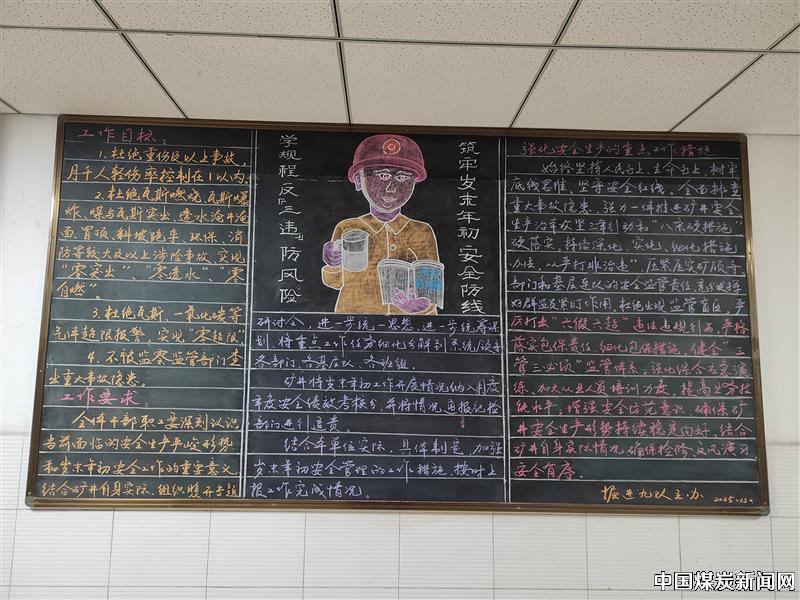 工作目标:
1.杜绝重伤及以上事故,
月千人轻伤率控制在1以内。
2.杜绝瓦斯燃烧、瓦斯爆
炸、煤与瓦斯突出、透水淹井淹
面、冒顶、斜坡跑车、环保、消
防等较大及以上涉险事故,实现
“零突出”、“零透水”、“零
自燃”。
3.杜绝瓦斯、一氧化碳等
气体超限报警,实现“零超限”
4.不被监察监管部门查
出重大事故隐患。
工作要求:
全体干部职工要深刻认识
当前面临的安全生产严峻形势
和岁末年初安全工作的重要意义
结合矿井自身实际,组织召开专题
学规程反“三违”防风险
筑牢岁末年初安全防线
研讨会,进一步统一思想,进一步统筹谋
划,将重点工作任务细化分解到系统领导
各部门、各基层队、各班组。
矿井将岁末年初工作开展情况纳入月度
年度安全绩效考核分,并将情况通报纪检
部门进行追责
结合本单位实际,具体制定、加强
岁末年初安全管理的工作措施,按时上
报工作完成情况。
强化安全生产的重点工作措施
始终坚持人民至上、生命至上,树牢
底线思维,坚守安全红线,全面排查
重大事故隐患,强力一体推进矿井安全
生产治本攻坚三年行动和“八条硬措施”
硬落实,持续深化、实化、细化措施
办法,从严打非治违”,压紧压实矿领导
部门和基层区队的安全监管责任,充分发挥
好群监及紧盯作用,杜绝出现监管盲区,严
厉打击“六假六超”违法违规行为,严格
落实包保责任,细化包保措施,健全“三
管三必须”监管体系,强化综合应急演
练、加大从业人员培训力度,提高业务技
能水平,增强安全防范意识,确保矿
井安全生产形势持续稳定向好,结合
矿井自身实际情况,确保检修、反风演习
安全有序。
掘进九队主办
2025.12.
中国煤炭新闻网